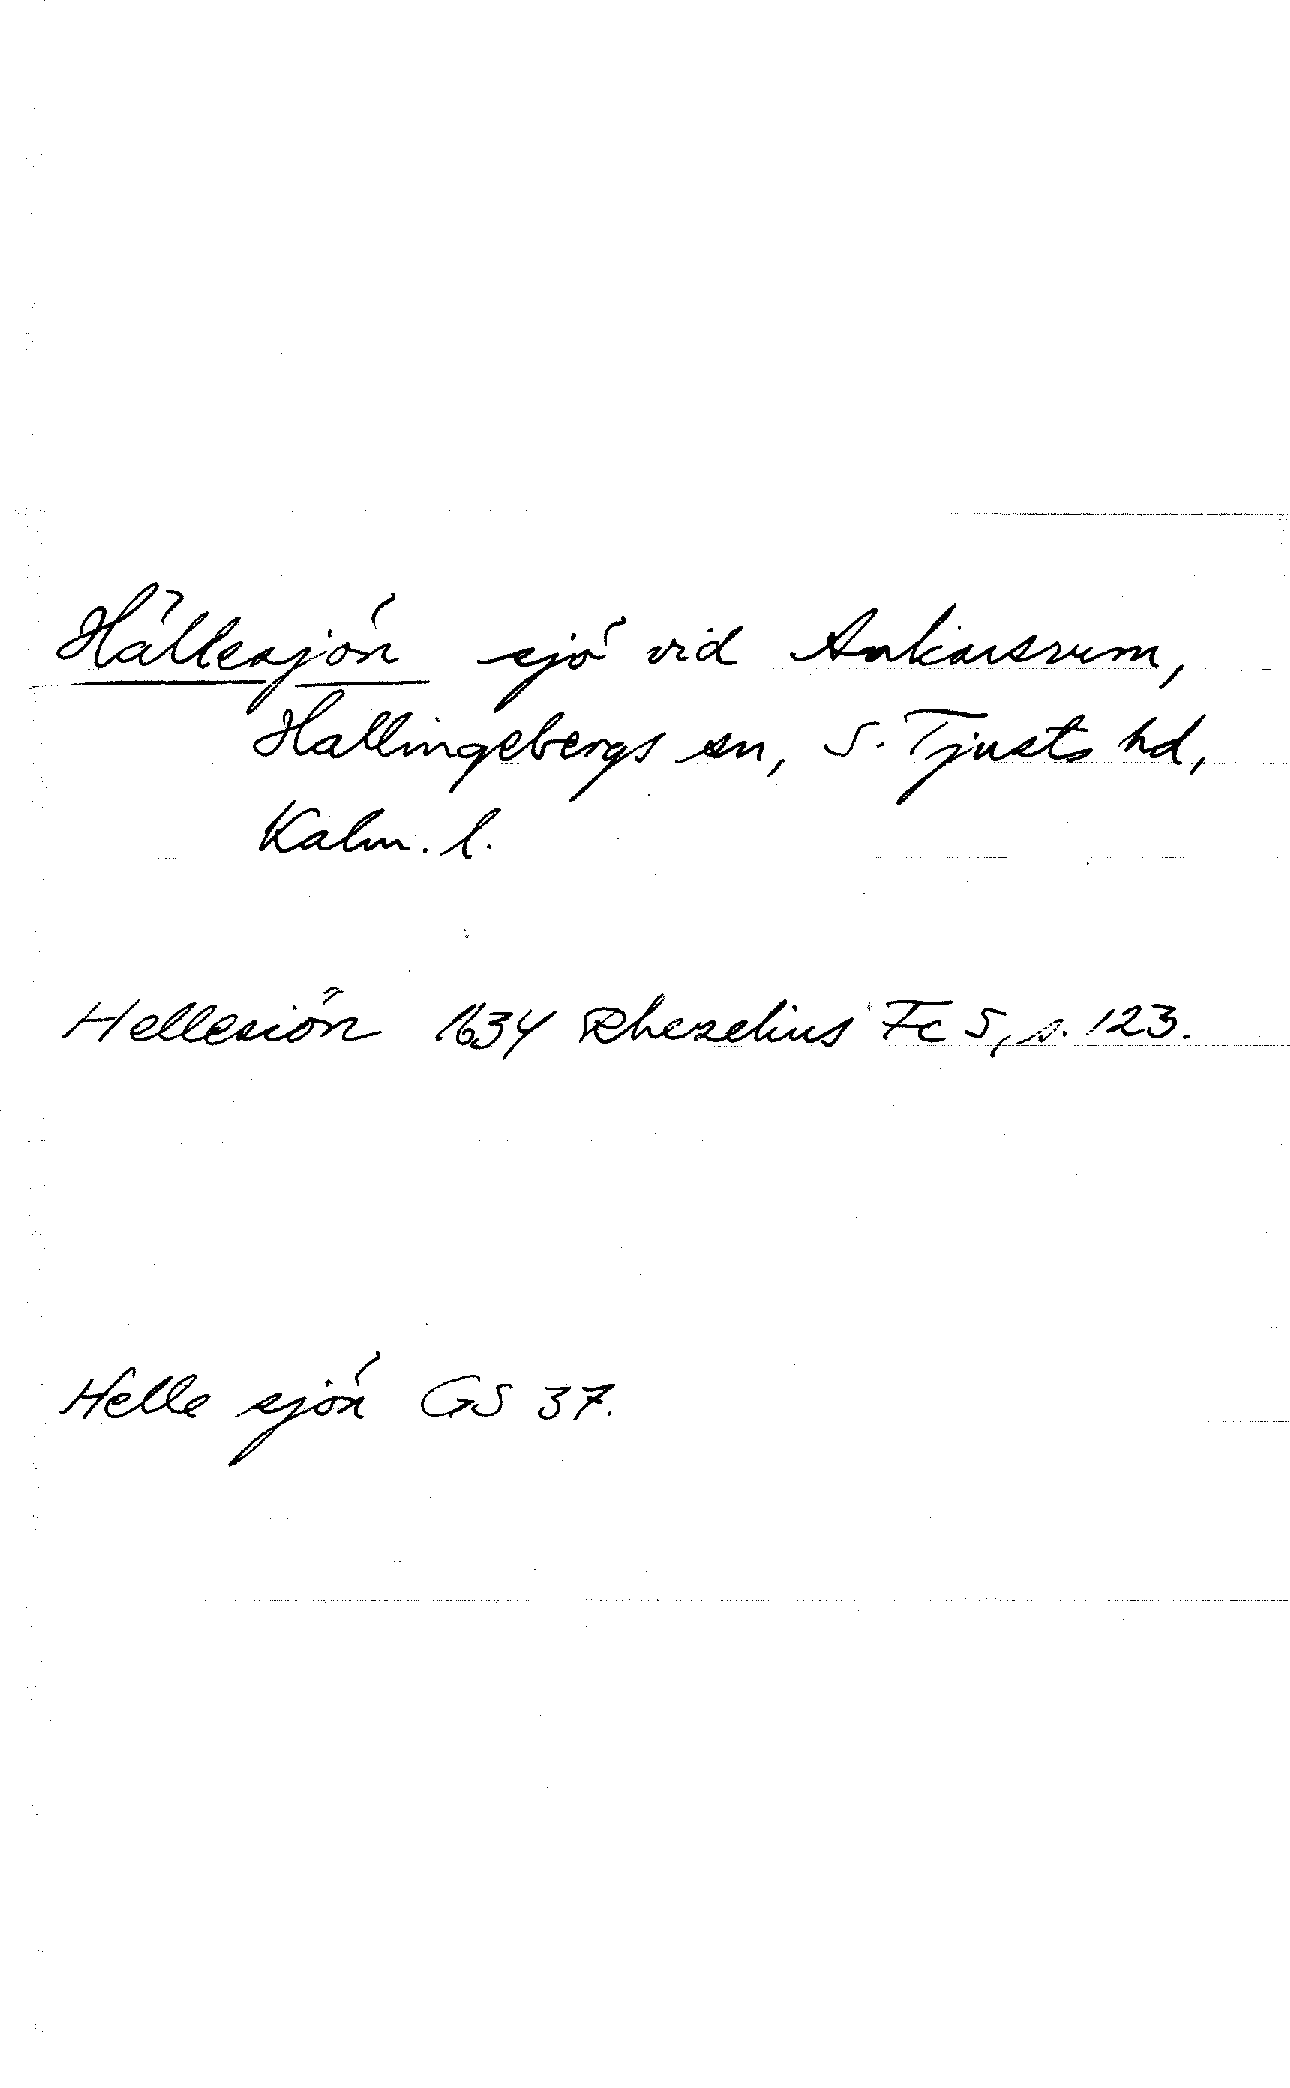 Hällesjön sjö vid Ankarsrum,
Hallingebergs sn, S. Tjusts hd,
Kalm. l.
Hellesiön 1634 Rhezelius Fc 5, s. 123.
Helle sjön GS 37.